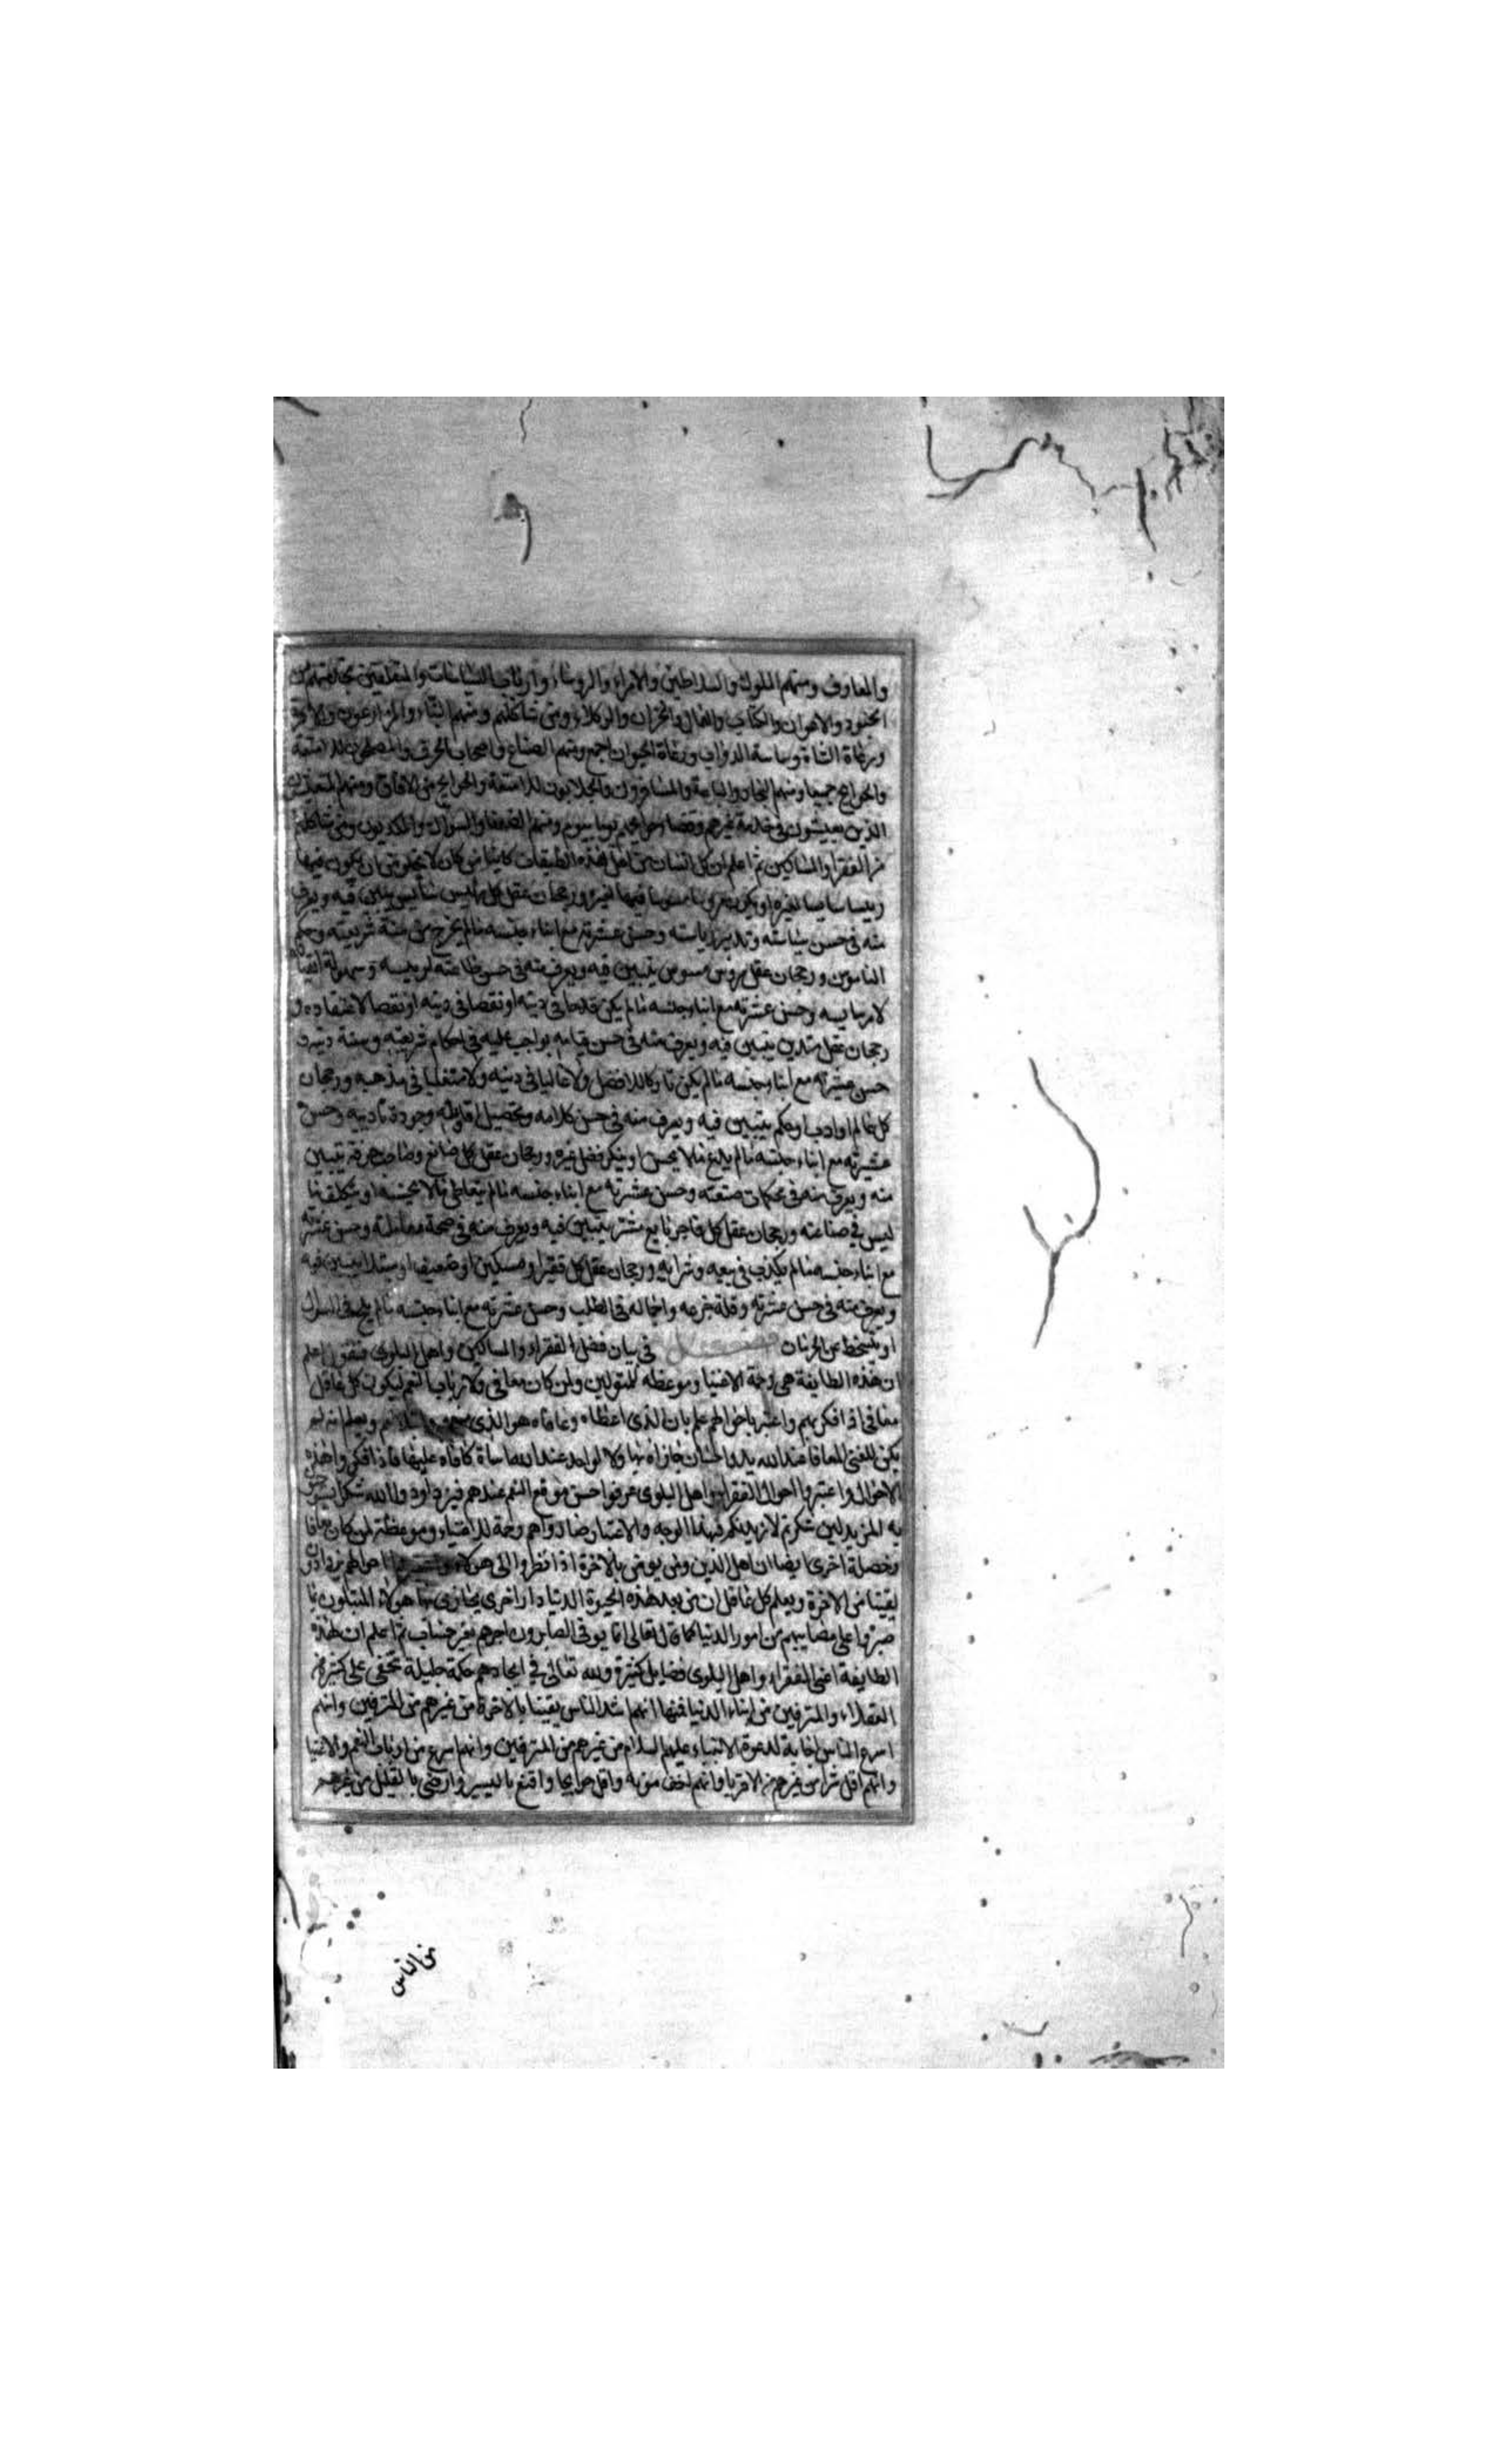 والمعارف ومنهم الملوك والسلاطين والامراء والروساء وارباب السياسات والمتعلقين بخدمتهم من
الجنود والاعوان والكتاب والعمال والخزان والوكلاء ومن شاكلهم ومنهم البناء والمزارعون والاكرة
ورعاة الشاة وساسة الدواب ورعاة الحيوان اجمع ومنهم الصناع واصحاب الحرف والمصلحون للامتعة
والحوايج جميعا ومنهم التجار والباعة والمسافرون والجلابون للامتعة والحوايج من الافاق ومنهم
الذين يعيشون في خدمة غيرهم وقضا حوايجهم يوما بيوم ومنهم الضعفا والسوال والمكديون ومن شاكلهم
من الفقرا والمساكين ثم اعلم ان كل انسان من اهل هذه الطبقات كاينا من كان لا يخلو من ان يكون فيها
رييسا سايسا لغيره او يكون مروسا مسوسا فيها لغيره ورجحان عقل كل رييس سايس يتبين فيه ويعرف
منه في حسن سياسته وتدبير رياسته وحسن عشرته مع ابناء جنسه مالم يخرج من سنة شريعته وحكم
الناموس ورجحان عقل مروس مسوس يتبين فيه ويعرف منه في حسن طاعته لرييسه وسهولة انقياده
لامر سايسه وحسن عشرته مع ابناء جنسه مالم يكن قدحا في دينه او نقصا في دينه او نقصا لاعتقاده و
رجحان عقل متدين يتبين فيه ويعرف منه في حسن قيامه بواجب عليه في احكام شريعته وسنة دينه و
حسن عشرته مع ابناء جنسه مالم يكن تاركا للافضل ولا غاليا في دينه ولا متعليا في مذهبه ورجحان
كل عالم او اديب او حكم يتبين فيه ويعرف منه في حسن كلامه وتحصيل اقاويله وجودة تاديبه وحسن
عشرته مع ابناء جنسه مالم يدع مالا يحسن او ينكر فضل غيره ورجحان عقل كل صانع وصاحب حرفة يتبين
منه ويعرف منه في محكمات صنعته وحسن عشرته مع ابناء جنسه مالم يتعاطى مالا يحسنه او يتكلف ما
ليس في صناعته ورجحان عقل كل تاجر بايع مشتر يتبين فيه ويعرف منه في صحة معاملته وحسن عشرته
مع ابناء جنسه مالم يكذب في بيعه وشرايه ورجحان عقل كل فقير او مسكين او ضعيف او مبتلا يتبين فيه
ويعرف منه في حسن عشرته وقلة جزعه واجماله في الطلب وحسن عشرته مع ابناء جنسه مالم يلح في السوال
او يتسخط عن الحرمان فصل في بيان فضل الفقراء والمساكين واهل البلوى فنقول اعلم
ان هذه الطايفة هي رحمة الاغنيا وموعظه للمتولين ولمن كان معافى ولارباب النعم ليكون كل عاقل
معافى اذا فكر بهم واعتبر باحوالهم علم بان الذى اعطاه وعافاه هو الذى ويعلم انه لم
يكن للغنى المعافا عند الله يد ولا احسان جازاه بها ولا لواحد عند الله اساة كافاه عليها فاذا فكروا هذه
الاحوال واعتبروا احوال الفقراء واهل البلوى عرفوا حسن موقع النعم عندهم فيزدادوا لله شكرا
به المزيد لين شكرتم لازيدنكم فبهذا الوجه والاعتبار صاروا هم رحمة للاغنياء وموعظة لمن كان معافا
وخصلة اخرى ايضا ان اهل الدين ومن يومن بالاخرة اذا نظروا الى هولاء احوالهم يزدادون
يقينا من الاخرة ويعلم كل عاقل ان من بعد هذه الحيوة الدنيا دار اخرى يجازى بها هولاء المبتلون بما
صبروا على مصايبهم من امور الدنيا كما قال تعالى انما يوفى الصابرون اجرهم بغير حساب ثم اعلم ان هذه
الطايفة اعنى الفقراء واهل البلوى فضايل كثيرة ولله تعالى في ايجادهم حكمة جليلة تخفى على كثير من
العقلاء والمترفين من ابناء الدنيا فمنها انهم اشد الناس يقينا بالاخرة من غيرهم من المترفين وانهم
اسرع الناس اجابة لدعوة الانبياء عليهم السلام من غيرهم من المترفين وانهم اسرع من ارباب النعم والاغنيا
وانهم اقل شرا من غيرهم من الاقربا وانهم اخف مونه واقل حوايجا واقنع باليسير وارضى بالقليل من غيرهم
من الناس